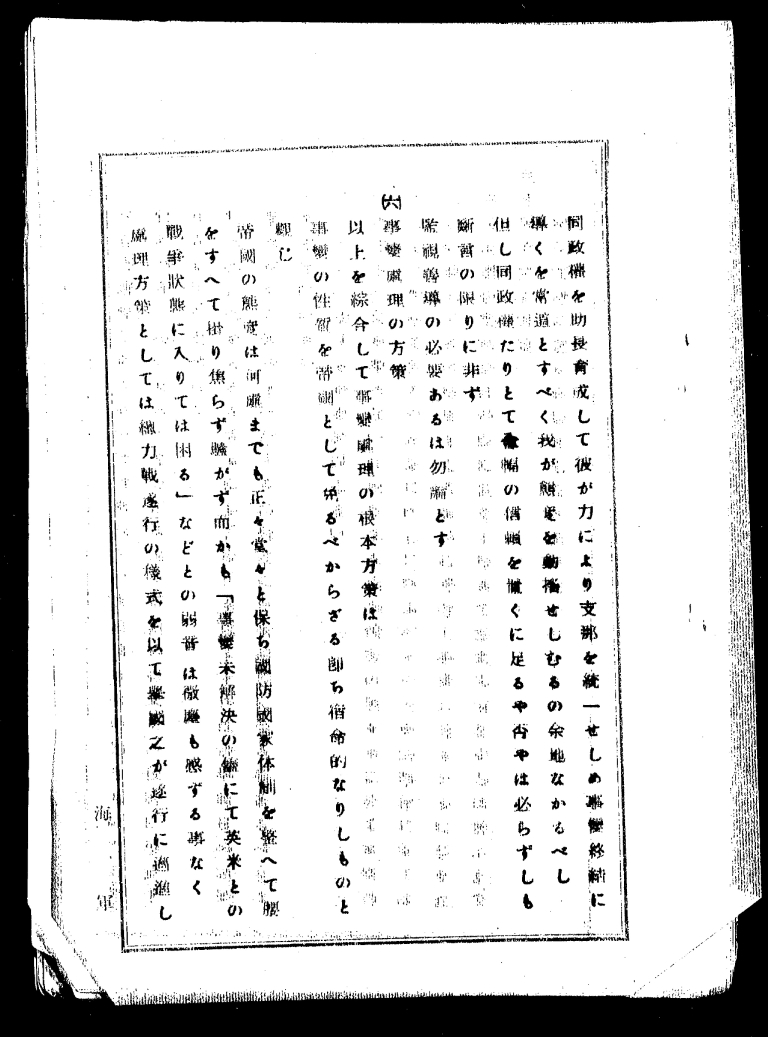 同政權を助長育成して彼が力により支那を統一せしめ事變終結に
導くを常道とすべく我が態度を動搖せしむるの余地なかるべし
但し同政權たりとて全幅の信頼を置くに足るや否やは必らずしも
斷言の限りに非ず
監視善導の必要あるは勿論とす
(六)
事變處理の方策
以上を綜合して事變處理の根本方策は
事變の性質を帝國として免るべからざる卽ち宿命的なりしものと
觀じ
帝國の態度は何處までも正々堂々と保ち國防國家体制を整へて腰
をすへて掛り焦らず騷がず而かも「事變未解決の儘にて英米との
戰爭狀態に入りては困る」などとの弱音は微塵も感ずる事なく
處理方策としては總力戰遂行の樣式を以て擧國之が遂行に邁進し
海軍